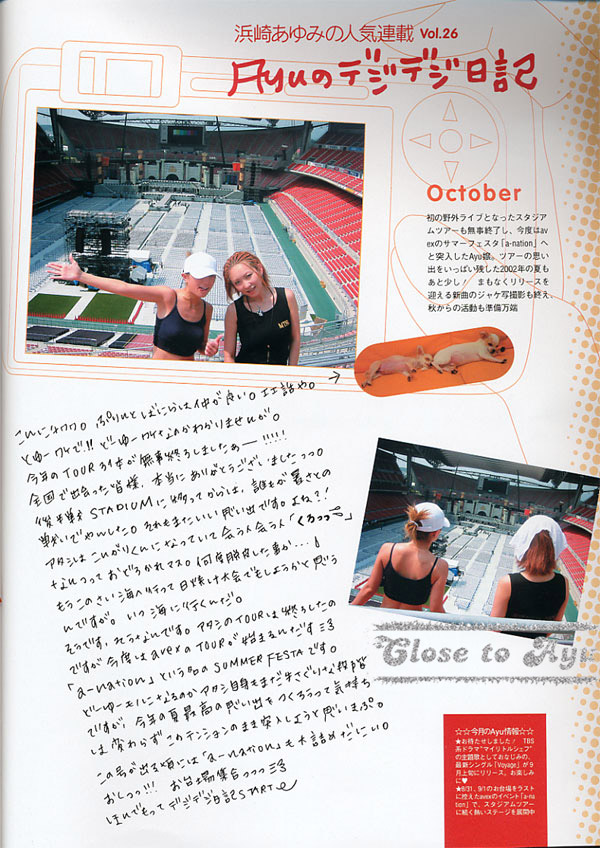 浜崎あゆみの人気連載 Vol.26
Ayuのデジデジ日記
October
初の野外ライブとなったスタジア
ムツアーも無事終了し、今度はav
exのサマーフェスタ「a-nation」へ
と突入したAyu嬢。ツアーの思い
出をいっぱい残した2002年の夏も
あと少し! まもなくリリースを
迎える新曲のジャケ写撮影も終え、
秋からの活動も準備万端
こんにチワワ。ぷりんとしばにらは仲が良い。
とゆーワケで!!どーゆーワケなのかわかりませんが。
今年のTOUR 3本が無事終ろしましたぁー!!!!!
全国で出会った皆様、本当にありがとうございましたっっ。
後半戦 STADIUMに移ってからは、誰もが暑さとの
戦いでやんした。それもまたいい思い出です。よね?!
アタシはこんがりくんになっていて会う人会う人「くろっっ〜」
なんつっておどろかれマス。何度脱皮した事か...!
もうこのさい海へ行って日焼け大会でもしようかと思う
んですが。いつ海に行くんだ。
そうです、そうなんです。アタシのTOURは終ろしたの
ですが今度はavexのTOURが始まるんだす
「a-nation」という名のSUMMER FESTAです。
どーゆーモノになるのかアタシ自身もまだ手さぐりな段階
ですが、今年の夏最高の思い出をつくろうって気持ち
は変わらずこのテンションのまま突入しようと思いまぷ。
この号が出る頃には「a-nation」も大詰めだにぃ。
おしっっ!!! お台場集合っっっ
ほんでもって デジデジ日記START
Close to Ayu
☆☆今月のAyu情報☆☆
★お待たせしました! TBS
系ドラマ“マイリトルシェフ”
の主題歌としておなじみの、
最新シングル「Voyage」が9
月上旬にリリース。お楽しみ
に♥
★8/31、9/1のお台場をラスト
に控えたavexのイベント「a-na
tion」で、スタジアムツアー
に続く熱いステージを展開中